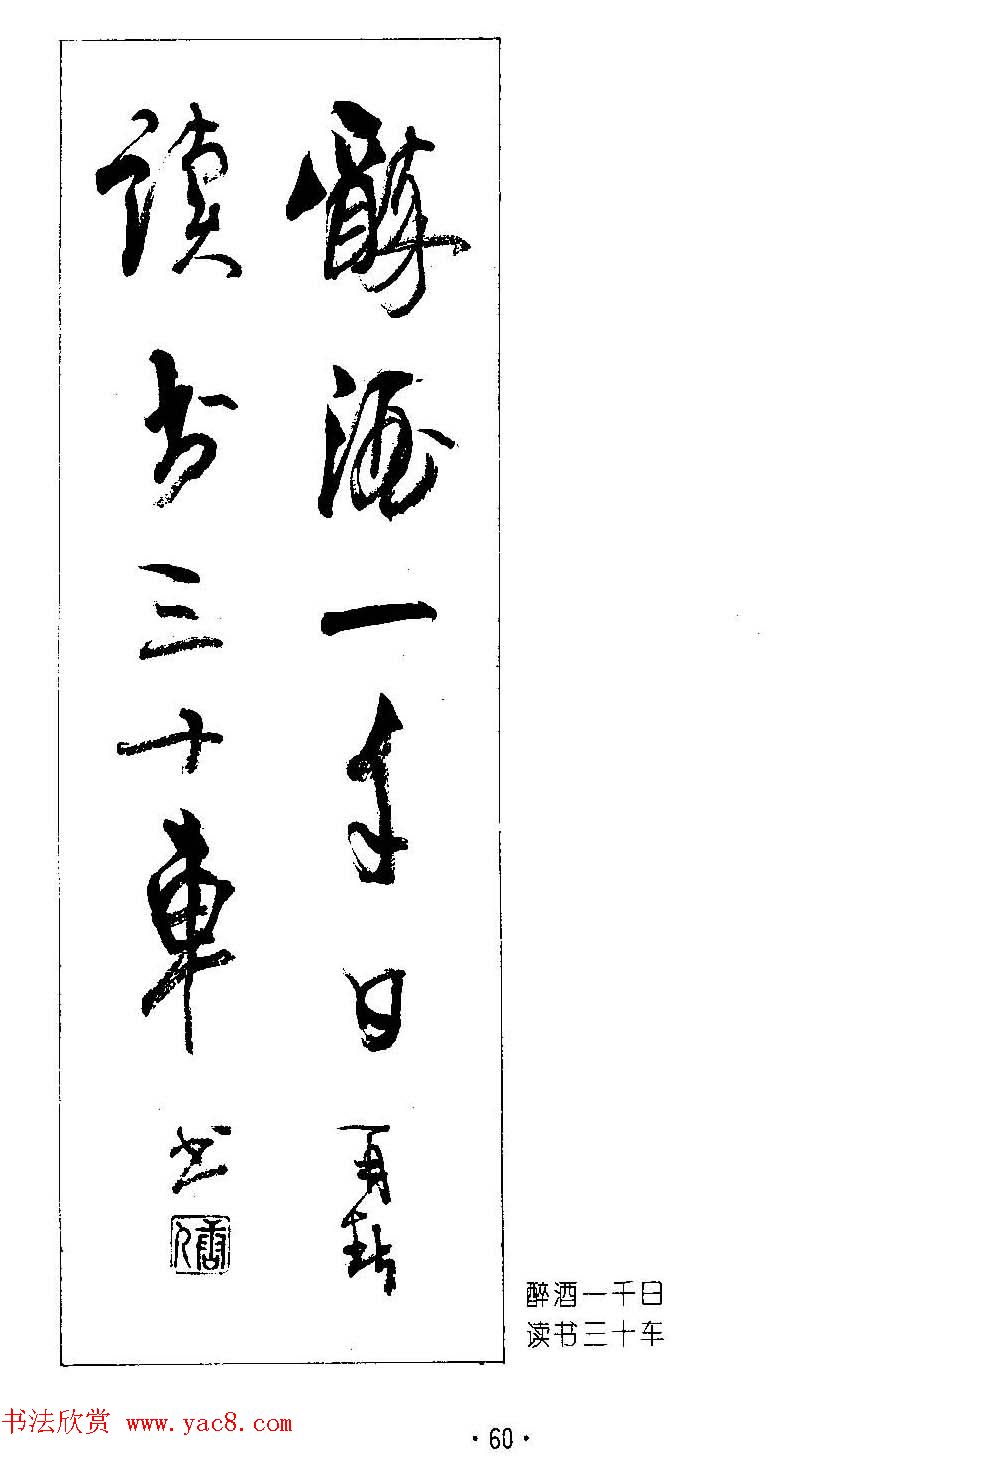 醉酒一千日
再斟
讀书三十車
书
醉酒一千日
读书三十车
书法欣赏 www.yac8.com
·60·